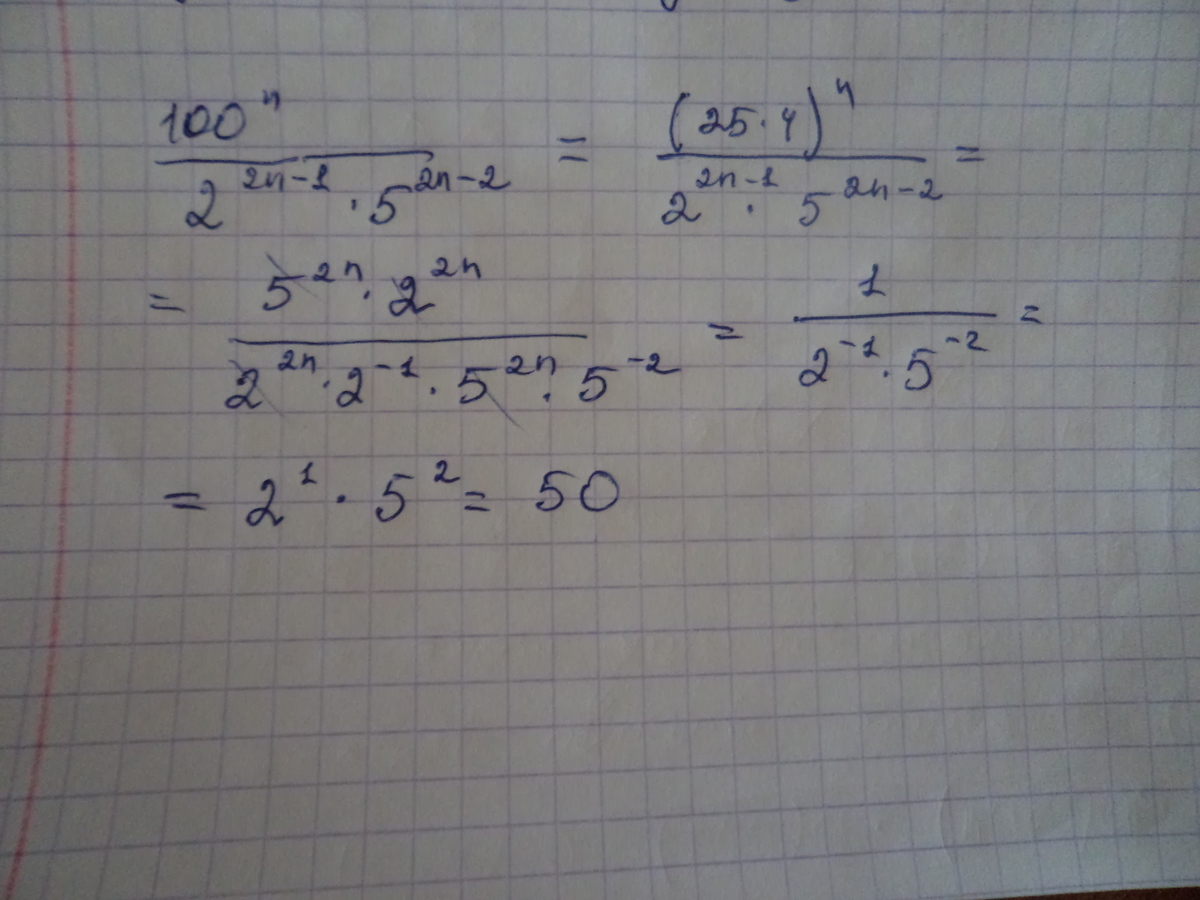 100^n / (2^(2n-1) · 5^(2n-2)) = (25·4)^n / (2^(2n-1) · 5^(2n-2)) =
= (5^(2n) · 2^(2n)) / (2^(2n) · 2^(-1) · 5^(2n) · 5^(-2)) = 1 / (2^(-1) · 5^(-2)) =
= 2^1 · 5^2 = 50